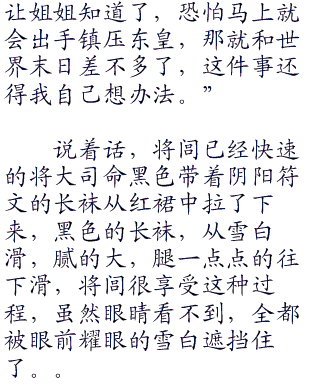 让姐姐知道了，恐怕马上就
会出手镇压东皇，那就和世
界末日差不多了，这件事还
得我自己想办法。”
说着话，将闾已经快速
的将大司命黑色带着阴阳符
文的长袜从红裙中拉了下
来，黑色的长袜，从雪白
滑，腻的大，腿一点点的往
下滑，将闾很享受这种过
程，虽然眼睛看不到，全都
被眼前耀眼的雪白遮挡住
了。。